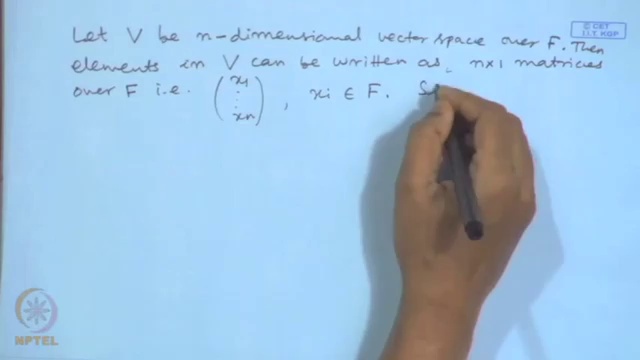 © CET
I.I.T. KGP
Let V be n-dimensional vector space over F. Then
elements in V can be written as, n×1 matrices
over F i.e. (x1 ⋮ xn), xi ∈ F.
NPTEL